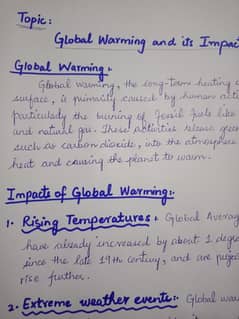 Topic:
Global Warming and its Impac
Global Warming:-
Global warming, the long-term heating
surface, is primarily caused by human acti
particularly the burning of fossil fuels like
and natural gas. These activities release gree
such as carbon dioxide, into the atmosphere
heat and causing the planet to warm.
Impacts of Global Warming:-
1. Rising Temperatures: Global Averag
have already increased by about 1 degr
since the late 19th century, and are
rise further.
2. Extreme weather events:- Global wa